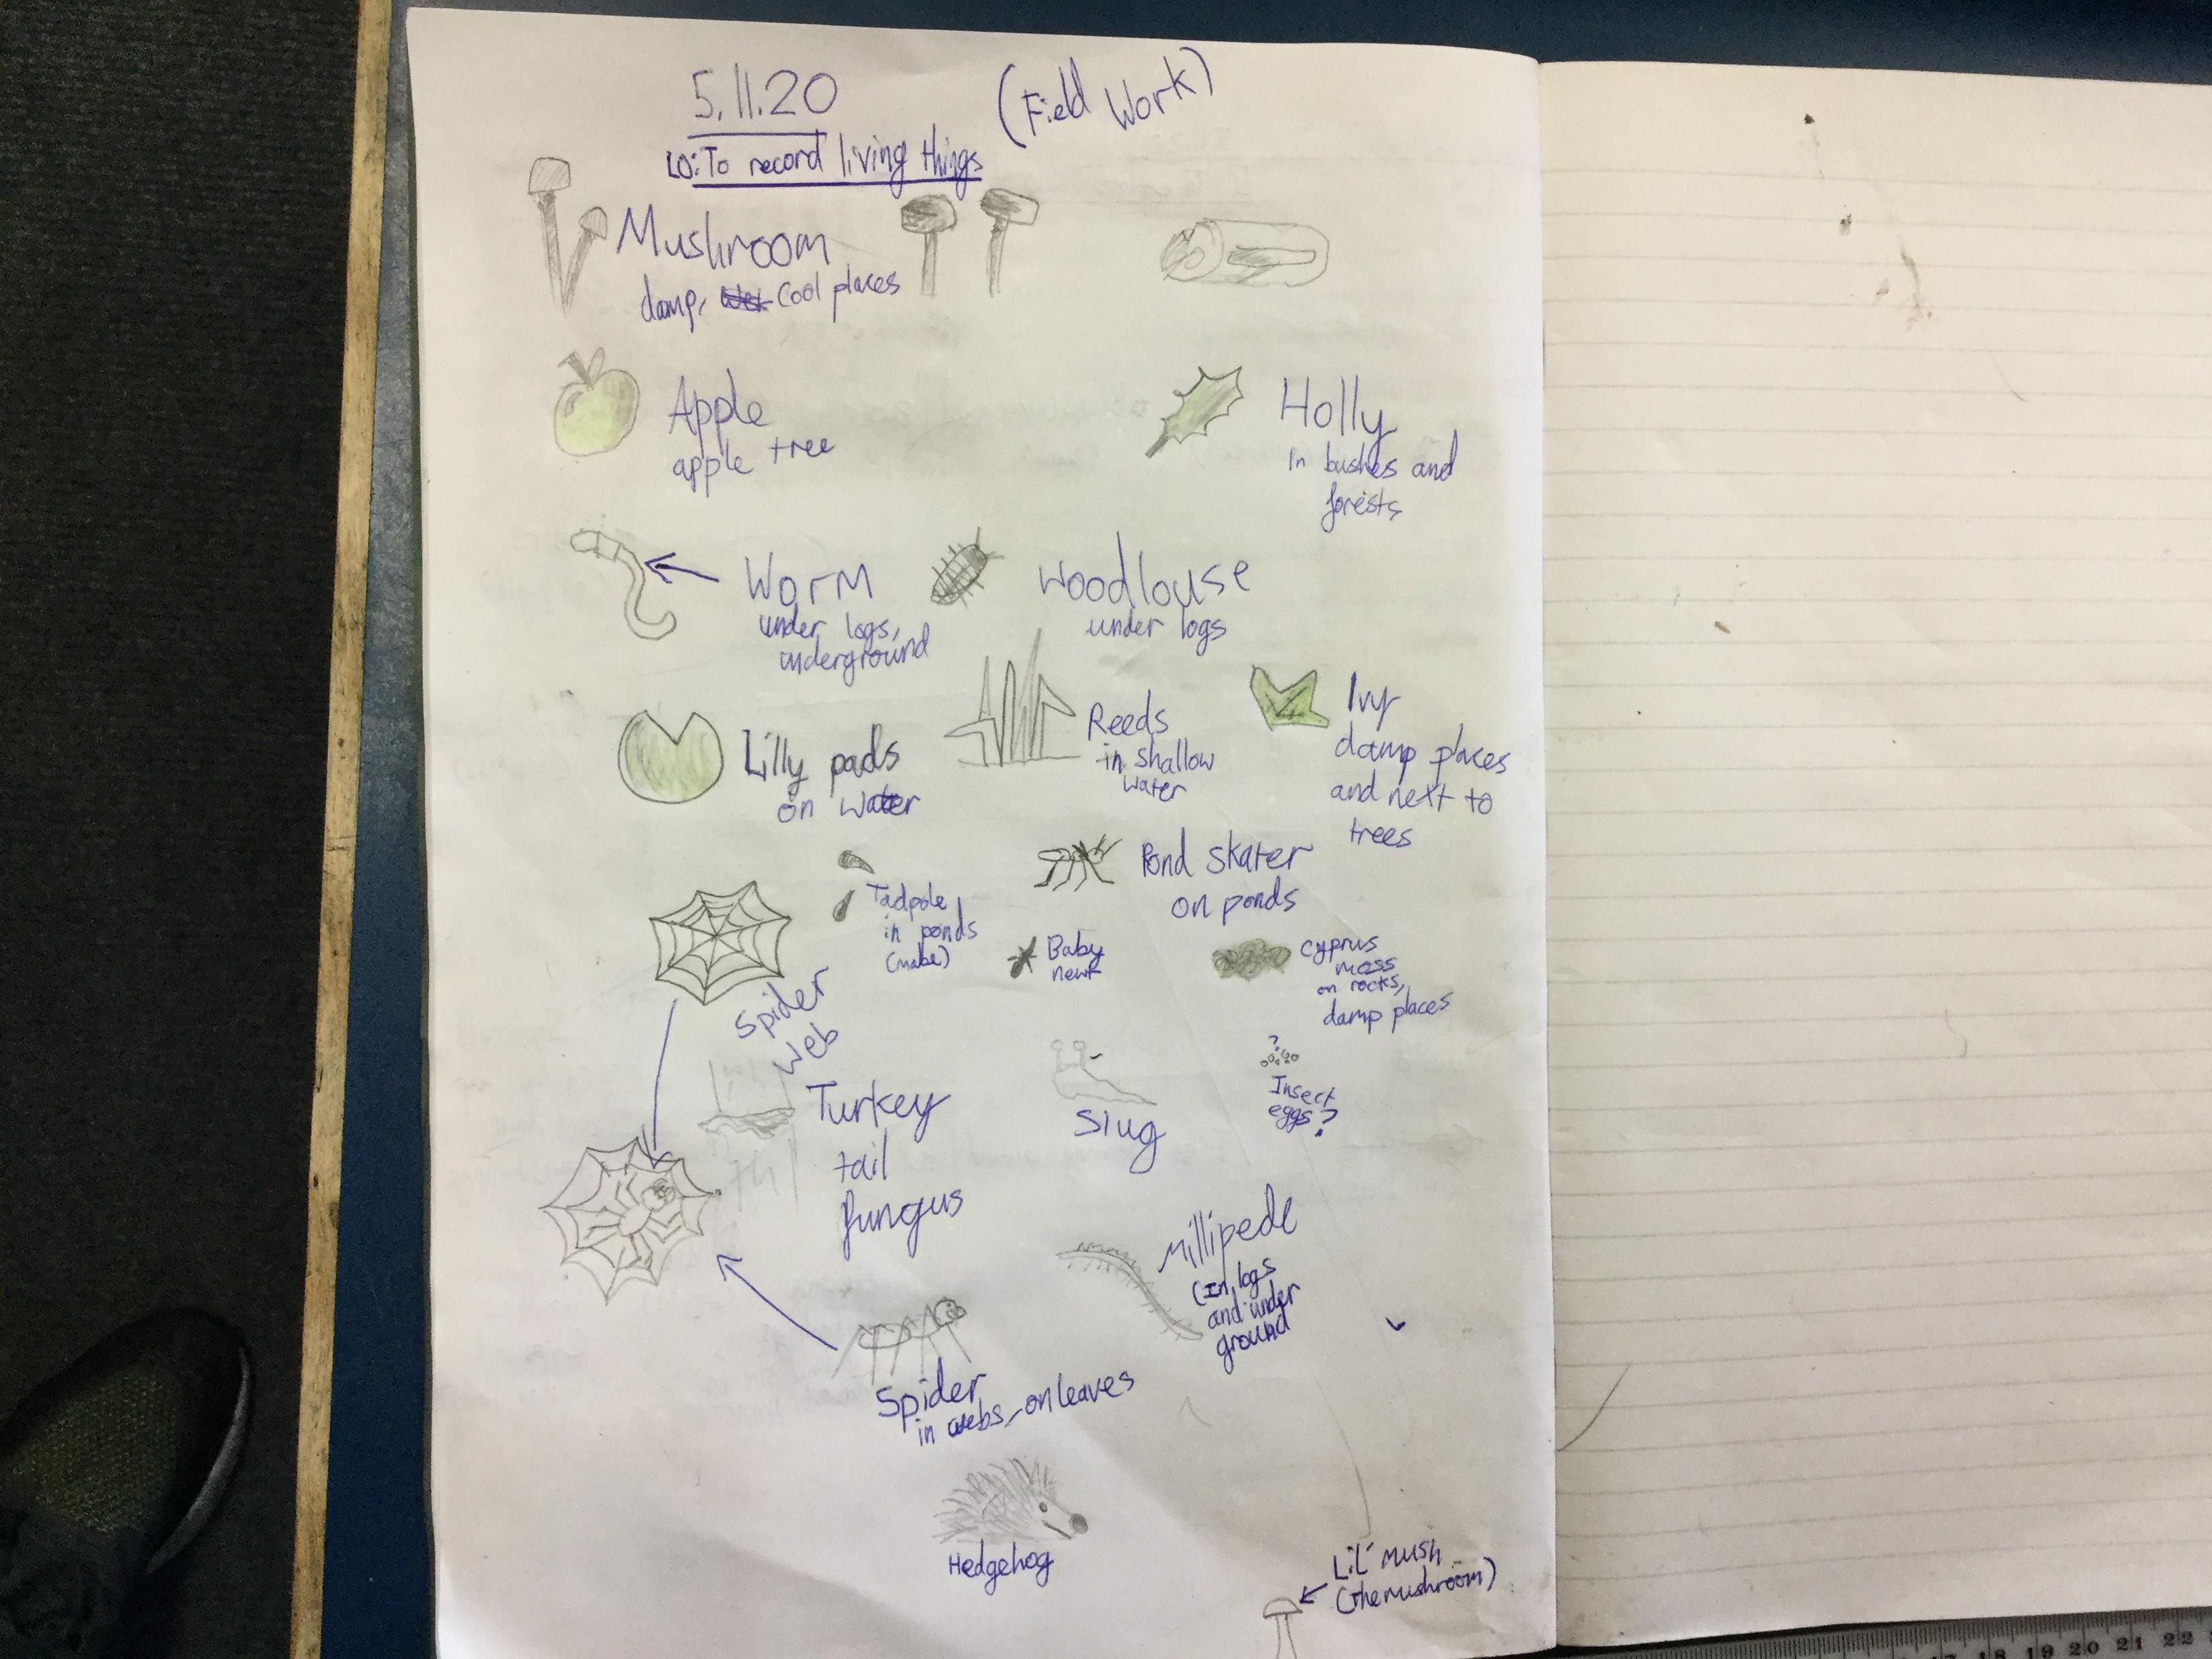 5.11.20
(Field Work)
LO: To record living things
Mushroom
damp, cool places
Apple
apple tree
Holly
In bushes and
forests
Worm
under logs,
underground
Woodlouse
under logs
Lilly pads
on water
Reeds
in shallow
water
Ivy
damp places
and next to
trees
Tadpole
in ponds
(mabe)
Pond skater
on ponds
Baby
newt
Cyprus
moss
on rocks,
damp places
Spider
web
Turkey
tail
fungus
Slug
?
Insect
eggs?
Millipede
(In logs
and under
ground
Spider
in webs, on leaves
Hedgehog
Lil' mush
(the mushroom)
18 19 20 21 22